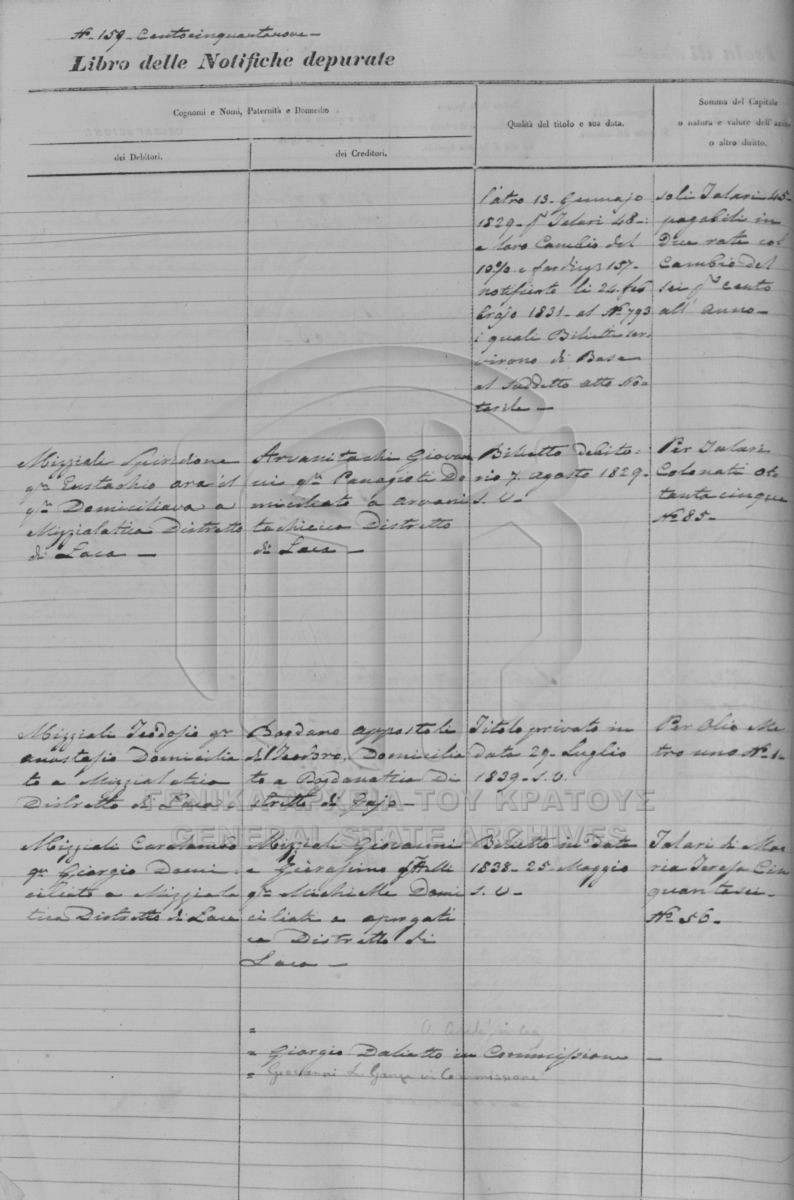 N. 159. Centocinquantanove -
Libro delle Notifiche depurate
Cognomi e Nomi, Paternità e Domicilio
dei Debitori.
dei Creditori.
Qualità del titolo e sua data.
Somma del Capitale
o natura e valore dell'
o altro diritto.
l'atro 13. Gennajo
1829. pr Talari 48-
e loro Cambio del
10%
157-
notificato li 24. feb
brajo 1831. al No 793
i quali Biglietti ser
virono di Base
al suddetto atto No-
tarile -
soli Talari 45-
pagabili in
Due rate col
Cambio del
sei pr cento
all' anno-
Mizziali Spiridone
qm Eustachio ora il
qm Domiciliava a
Mizzialatica Distretto
di Laca -
Arvanitachi Giovan
ni qm Panagioti Do
miciliato a Arvani
tachieica Distretto
di Laca -
Biglietto debito-
rio 7. Agosto 1829-
S. V.-
Per Talari
Colonati ot
tantacinque
No 85-
Mizziali Teodosio qm
Anastasio Domicilia
to a Mizzialatica
Distretto di Laca
Bogdano Appostoli
di Teodoro, Domicilia
to a Bogdanatica Di
stretto di Gajo-
Titolo privato in
data 29. Luglio
1839. S. V.
Per Olio Me
tro uno No 1-
ΓΕΝΙΚΑ ΑΡΧΕΙΑ ΤΟΥ ΚΡΑΤΟΥΣ
GENERAL STATE ARCHIVES
Mizziali Caralambo
qm Giorgio Domi
ciliato a Mizziala
tica Distretto di Laca
Mizziali Giovanni
e Gierasimo fratelli
qm Michielle Domi
ciliati a Apergati
ca Distretto di
Laca -
Biglietto in Data
1838. 25. Maggio
S. V-
Talari di Ma
ria Teresa Cin
quantasei-
No 56-
Giorgio Dalietto in Commissione -
Giovanni in Commissione